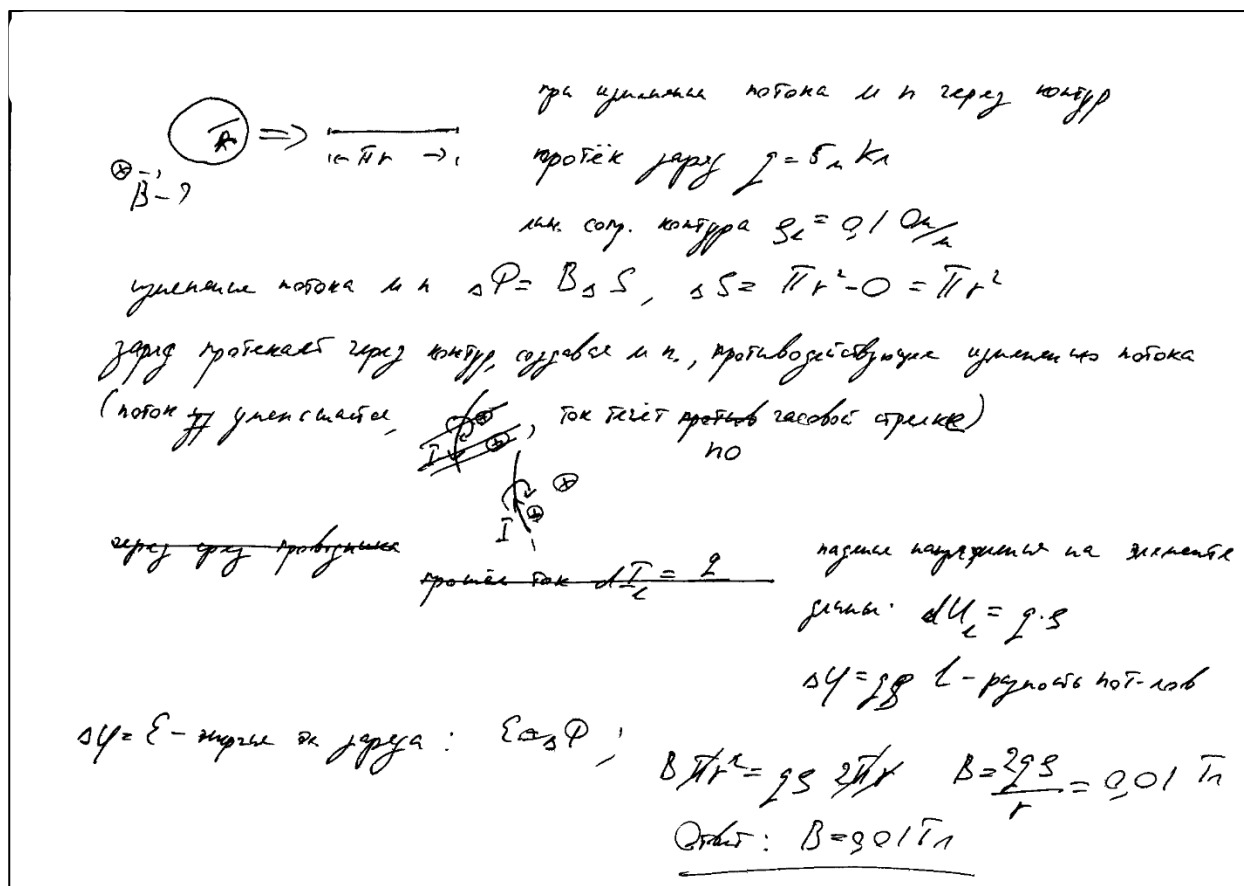 при изменение потока м п через контур
R => |← πr →|
протёк заряд q = 5 м Кл
⊗ B - ?
лин. сопр. контура ρₑ = 0,1 Ом/м
изменение потока м п ΔФ = BΔS, ΔS = πr² - 0 = πr²
заряд протекает через контур, создавая м п., противодействующее изменению потока
(поток уменьшается, I, ток течёт против по часовой стрелке)
I
через сред проводника
прошёл ток dIₑ = q
падение напряжения на элементе
длины: dUₑ = q·ρ
Δφ = qρ l - разность пот-лов
Δφ = ℰ - энергия заряда : ℰ = ΔФ ;
Bπr² = qρ 2πr B = 2qρ/r = 0,01 Тл
Ответ: B = 0,01 Тл